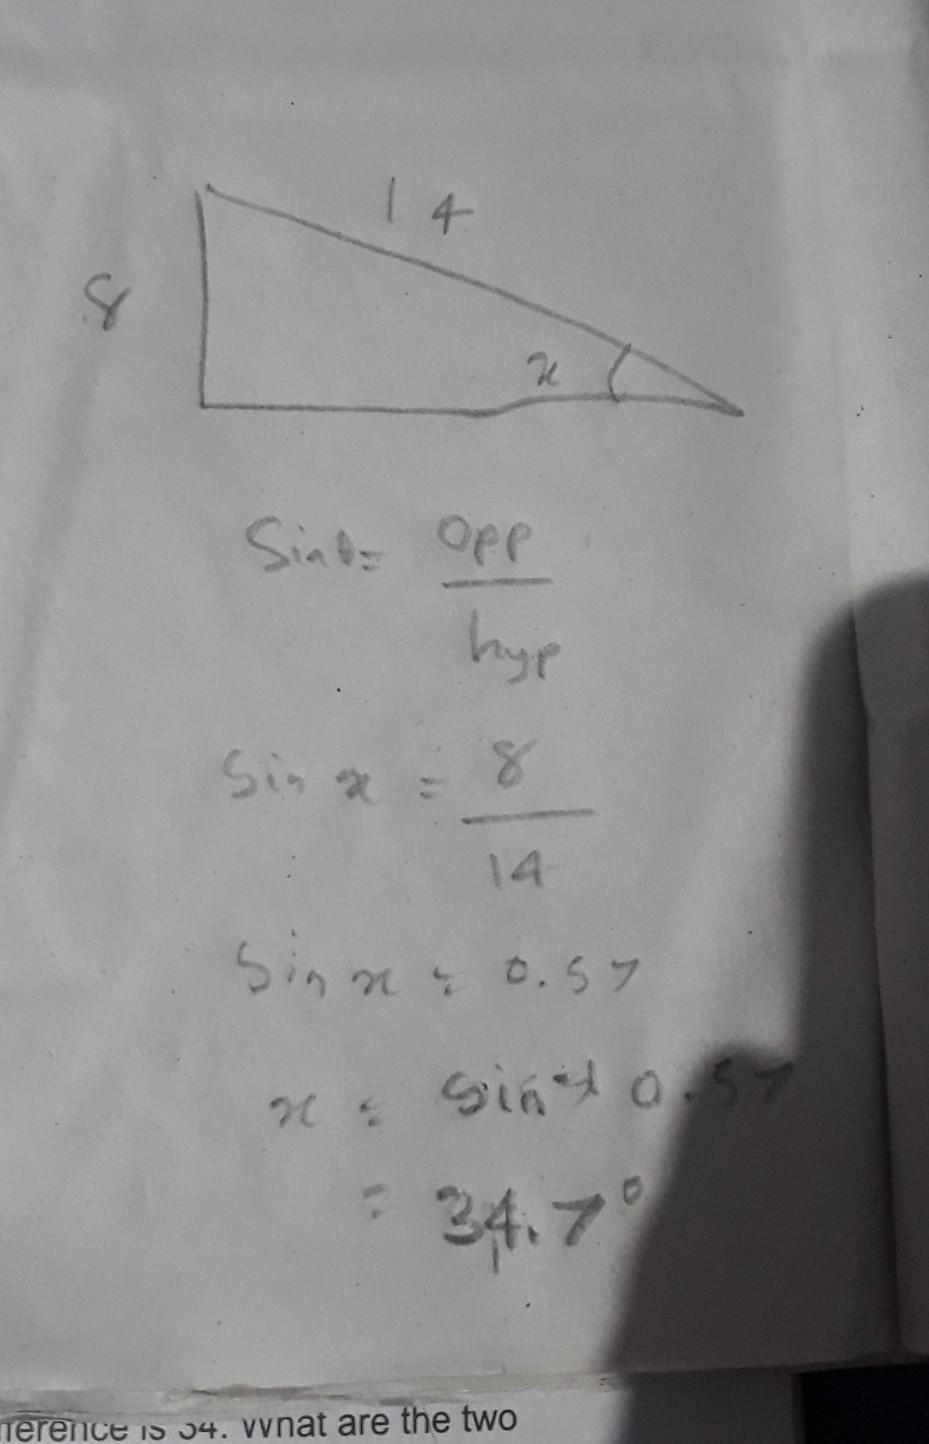 14
8
x
Sinθ = Opp
hyp
Sin x = 8
14
Sin x = 0.57
x = Sin⁻¹ 0.57
= 34.7°
is 34. What are the two